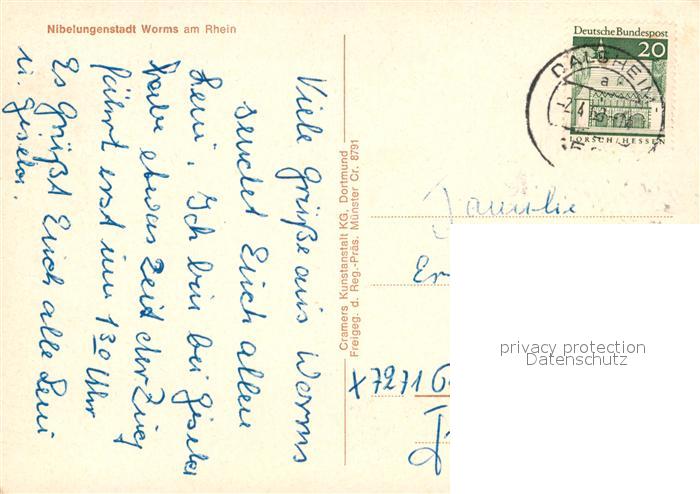 Nibelungenstadt Worms am Rhein
Viele Grüße aus Worms
sendet Euch allen
Leni. Ich bin bei Gisela
habe etwas Zeit der Zug
fährt erst um 1 30 Uhr
Es Grüßt Euch alle Leni
u. Gisela.
Cramers Kunstanstalt KG, Dortmund
Freigeg. d. Reg.-Präs. Münster Cr. 8791
Deutsche Bundespost
20
LORSCH/HESSEN
DALSHEIM
a
Familie
Er
x 7271 G
privacy protection
Datenschutz